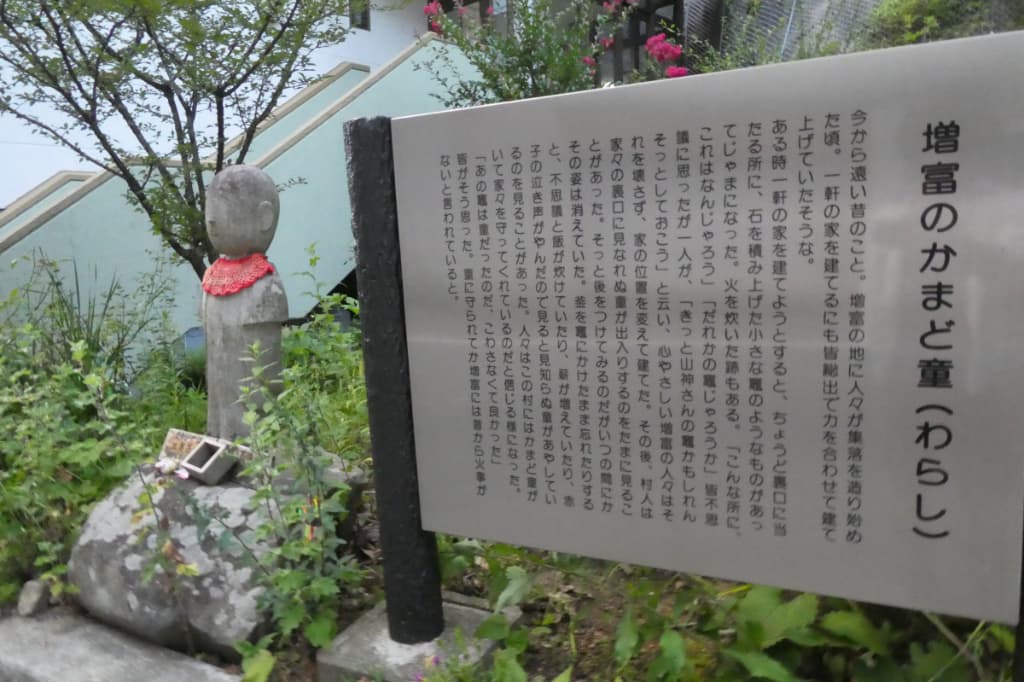 増富のかまど童(わらし)
今から遠い昔のこと。増富の地に人々が集落を造り始め
た頃。一軒の家を建てるにも皆総出で力を合わせて建て
上げていたそうな。
ある時一軒の家を建てようとすると、ちょうど裏口に当
たる所に、石を積み上げた小さな竈のようなものがあっ
てじゃまになった。火を炊いた跡もある。「こんな所に、
これはなんじゃろう」「だれかの竈じゃろうか」皆不思
議に思ったが一人が、「きっと山神さんの竈かもしれん
そっとしておこう」と云い、心やさしい増富の人々はそ
れを壊さず、家の位置を変えて建てた。その後、村人は
家々の裏口に見なれぬ童が出入りするのをたまに見るこ
とがあった。そっと後をつけてみるのだがいつの間にか
その姿は消えていた。釜を竈にかけたまま忘れたりする
と、不思議と飯が炊けていたり、薪が増えていたり、赤
子の泣き声がやんだので見ると見知らぬ童があやしてい
るのを見ることがあった。人々はこの村にはかまど童が
いて家々を守ってくれているのだと信じる様になった。
「あの竈は童だったのだ、こわさなくて良かった」
皆がそう思った。童に守られてか増富には昔から火事が
ないと言われていると。